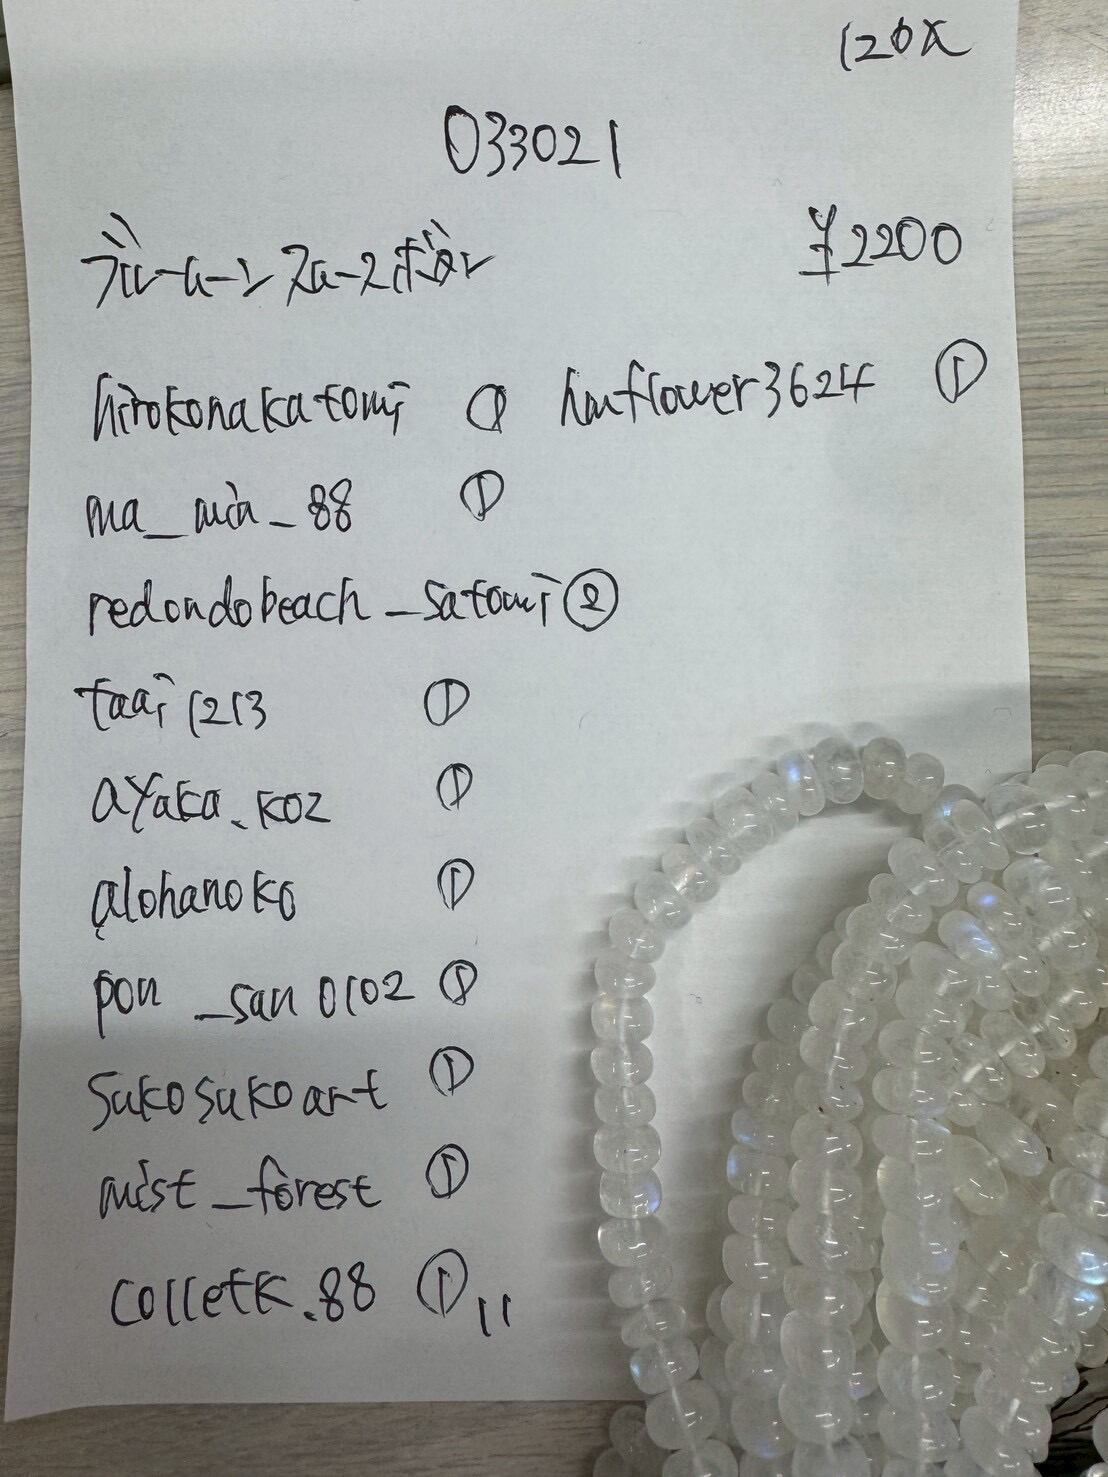 120X
033021
ブルームーンストーンボタン ¥2200
hirokonakatomi ① hmflower3624 ①
ma_min_88 ①
redondobeach_satomi ②
taai1213 ①
ayaka.koz ①
alohanoko ①
pon_san0102 ①
sukosukoart ①
mist_forest ①
colletk.88 ① 11